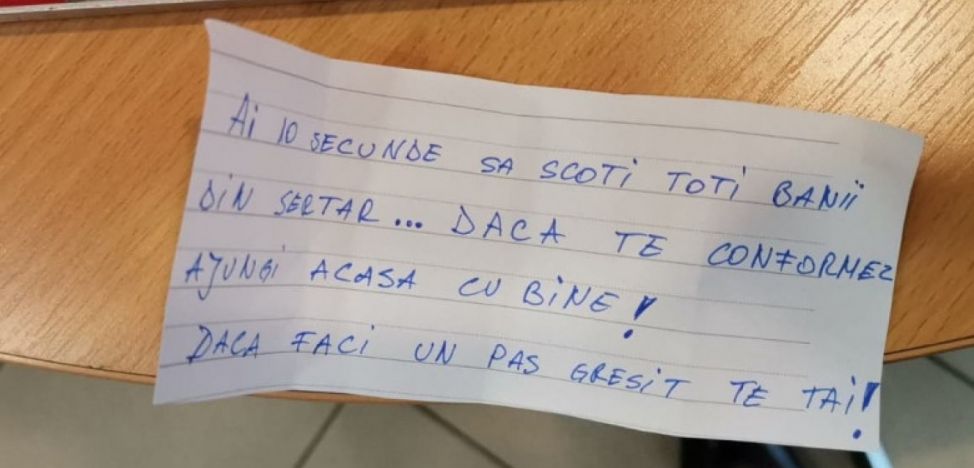 Ai 10 SECUNDE SA SCOTi TOTi BANii
DiN SERTAR... DACA TE CONFORMEZ
AJUNGi ACASA CU BiNE!
DACA FACi UN PAS GRESiT TE TAi!